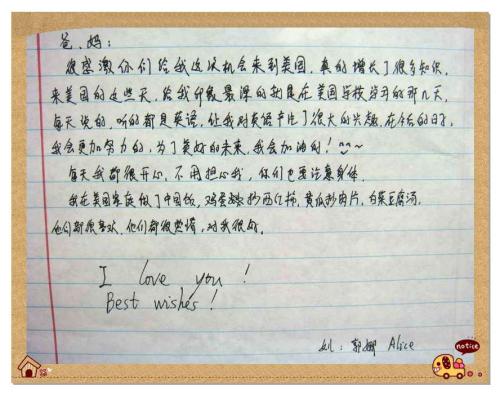 爸、妈：
很感激你们给我这次机会来到美国，真的增长了很多知识，
来美国的这些天，给我印象最深的就是在美国学校学习的那几天，
每天说的，听的都是英语，让我对英语产生了很大的兴趣，在后的日子，
我会更加努力的，为了美好的未来，我会加油的！^^~
每天我都很开心，不用担心我，你们也要注意身体。
我在美国家庭做了中国饭，鸡蛋炒西红柿，黄瓜炒肉片，白菜豆腐汤，
他们都很喜欢，他们都很热情，对我很好。
I love you!
Best wishes!
郭娜 Alice
notice